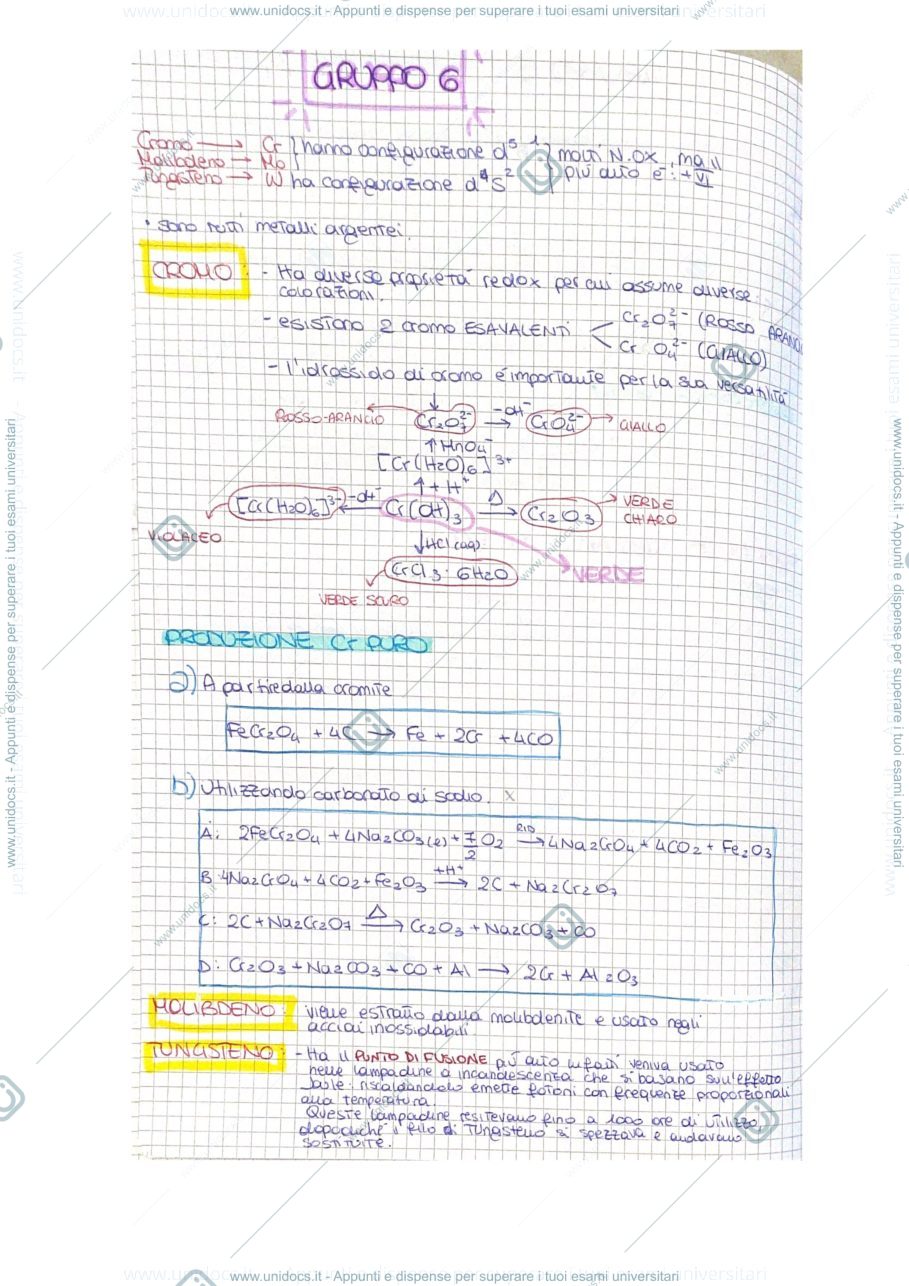 www.unidocs.it - Appunti e dispense per superare i tuoi esami universitari
GRUPPO 6
Cromo → Cr } hanno configurazione d⁵ s¹ } molti N.OX, ma il
Molibdeno → Mo } più alto è: +VI
Tungsteno → W ha configurazione d⁴s²
• sono tutti metalli argentei.
CROMO: - Ha diverse proprietà redox per cui assume diverse
colorazioni.
- esistono 2 cromo ESAVALENTI < Cr₂O₇²⁻ (ROSSO ARANCIO
Cr O₄²⁻ (GIALLO)
- l'idrossido di cromo è importante per la sua versatilità
ROSSO-ARANCIO ← Cr₂O₇²⁻ -OH⁻→ CrO₄²⁻ → GIALLO
↑ MnO₄⁻
[Cr(H₂O)₆]³⁺
↑ + H⁺
[Cr(H₂O)₆]³⁻ ←-OH⁻ Cr(OH)₃ Δ→ Cr₂O₃ → VERDE CHIARO
VIOLACEO
↓ HCl (aq)
CrCl₃ · 6H₂O
VERDE
VERDE SCURO
PRODUZIONE Cr PURO
a) A partire dalla cromite
FeCr₂O₄ + 4C → Fe + 2Cr + 4CO
b) Utilizzando carbonato di sodio. X
A: 2FeCr₂O₄ + 4Na₂CO₃(l) + 7/2 O₂ RID→ 4Na₂CrO₄ + 4CO₂ + Fe₂O₃
B: 4Na₂CrO₄ + 4CO₂ + Fe₂O₃ +H⁺→ 2C + Na₂Cr₂O₇
C: 2C + Na₂Cr₂O₇ Δ→ Cr₂O₃ + Na₂CO₃ + CO
D: Cr₂O₃ + Na₂CO₃ + CO + Al → 2Cr + Al₂O₃
MOLIBDENO: viene estratto dalla molibdenite e usato negli
acciai inossidabili
TUNGSTENO: - Ha il PUNTO DI FUSIONE più alto infatti veniva usato
nelle lampadine a incandescenza che si basano sull'effetto
Joule: riscaldandolo emette fotoni con frequenze proporzionali
alla temperatura.
Queste lampadine resistevano fino a 1000 ore di utilizzo,
dopodiché il filo di Tungsteno si spezzava e andavano
sostituite.
www.unidocs.it - Appunti e dispense per superare i tuoi esami universitari
www.unidocs.it - Appunti e dispense per superare i tuoi esami universitari
www.unidocs.it - Appunti e dispense per superare i tuoi esami universitari